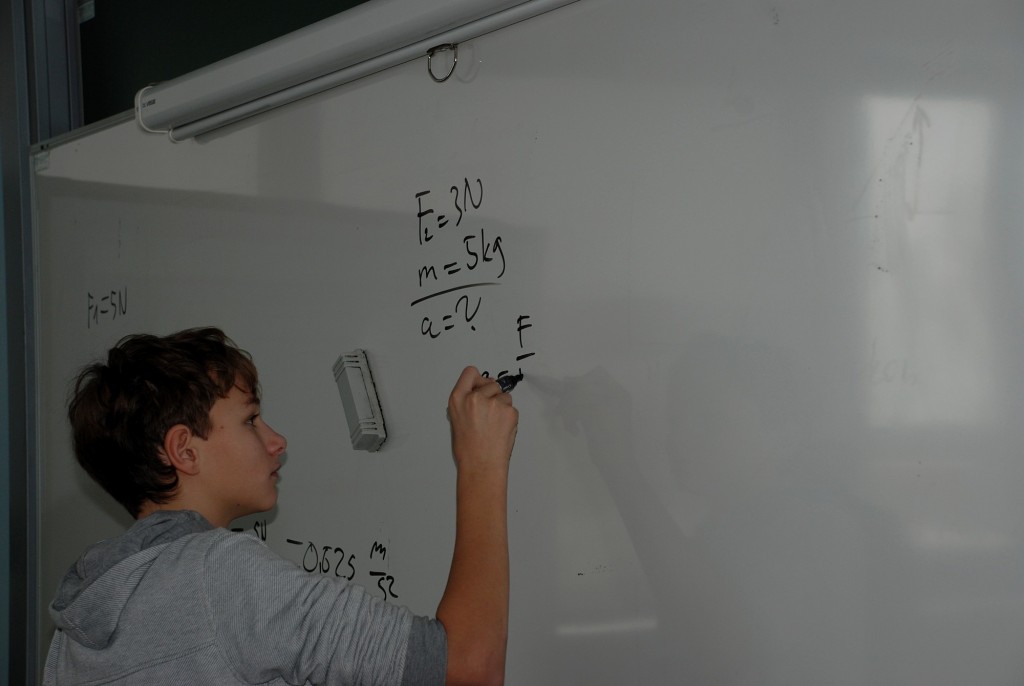 F₂=3N
m=5kg
a=?
F₁=5N
F
5N
-0,625 m/s2